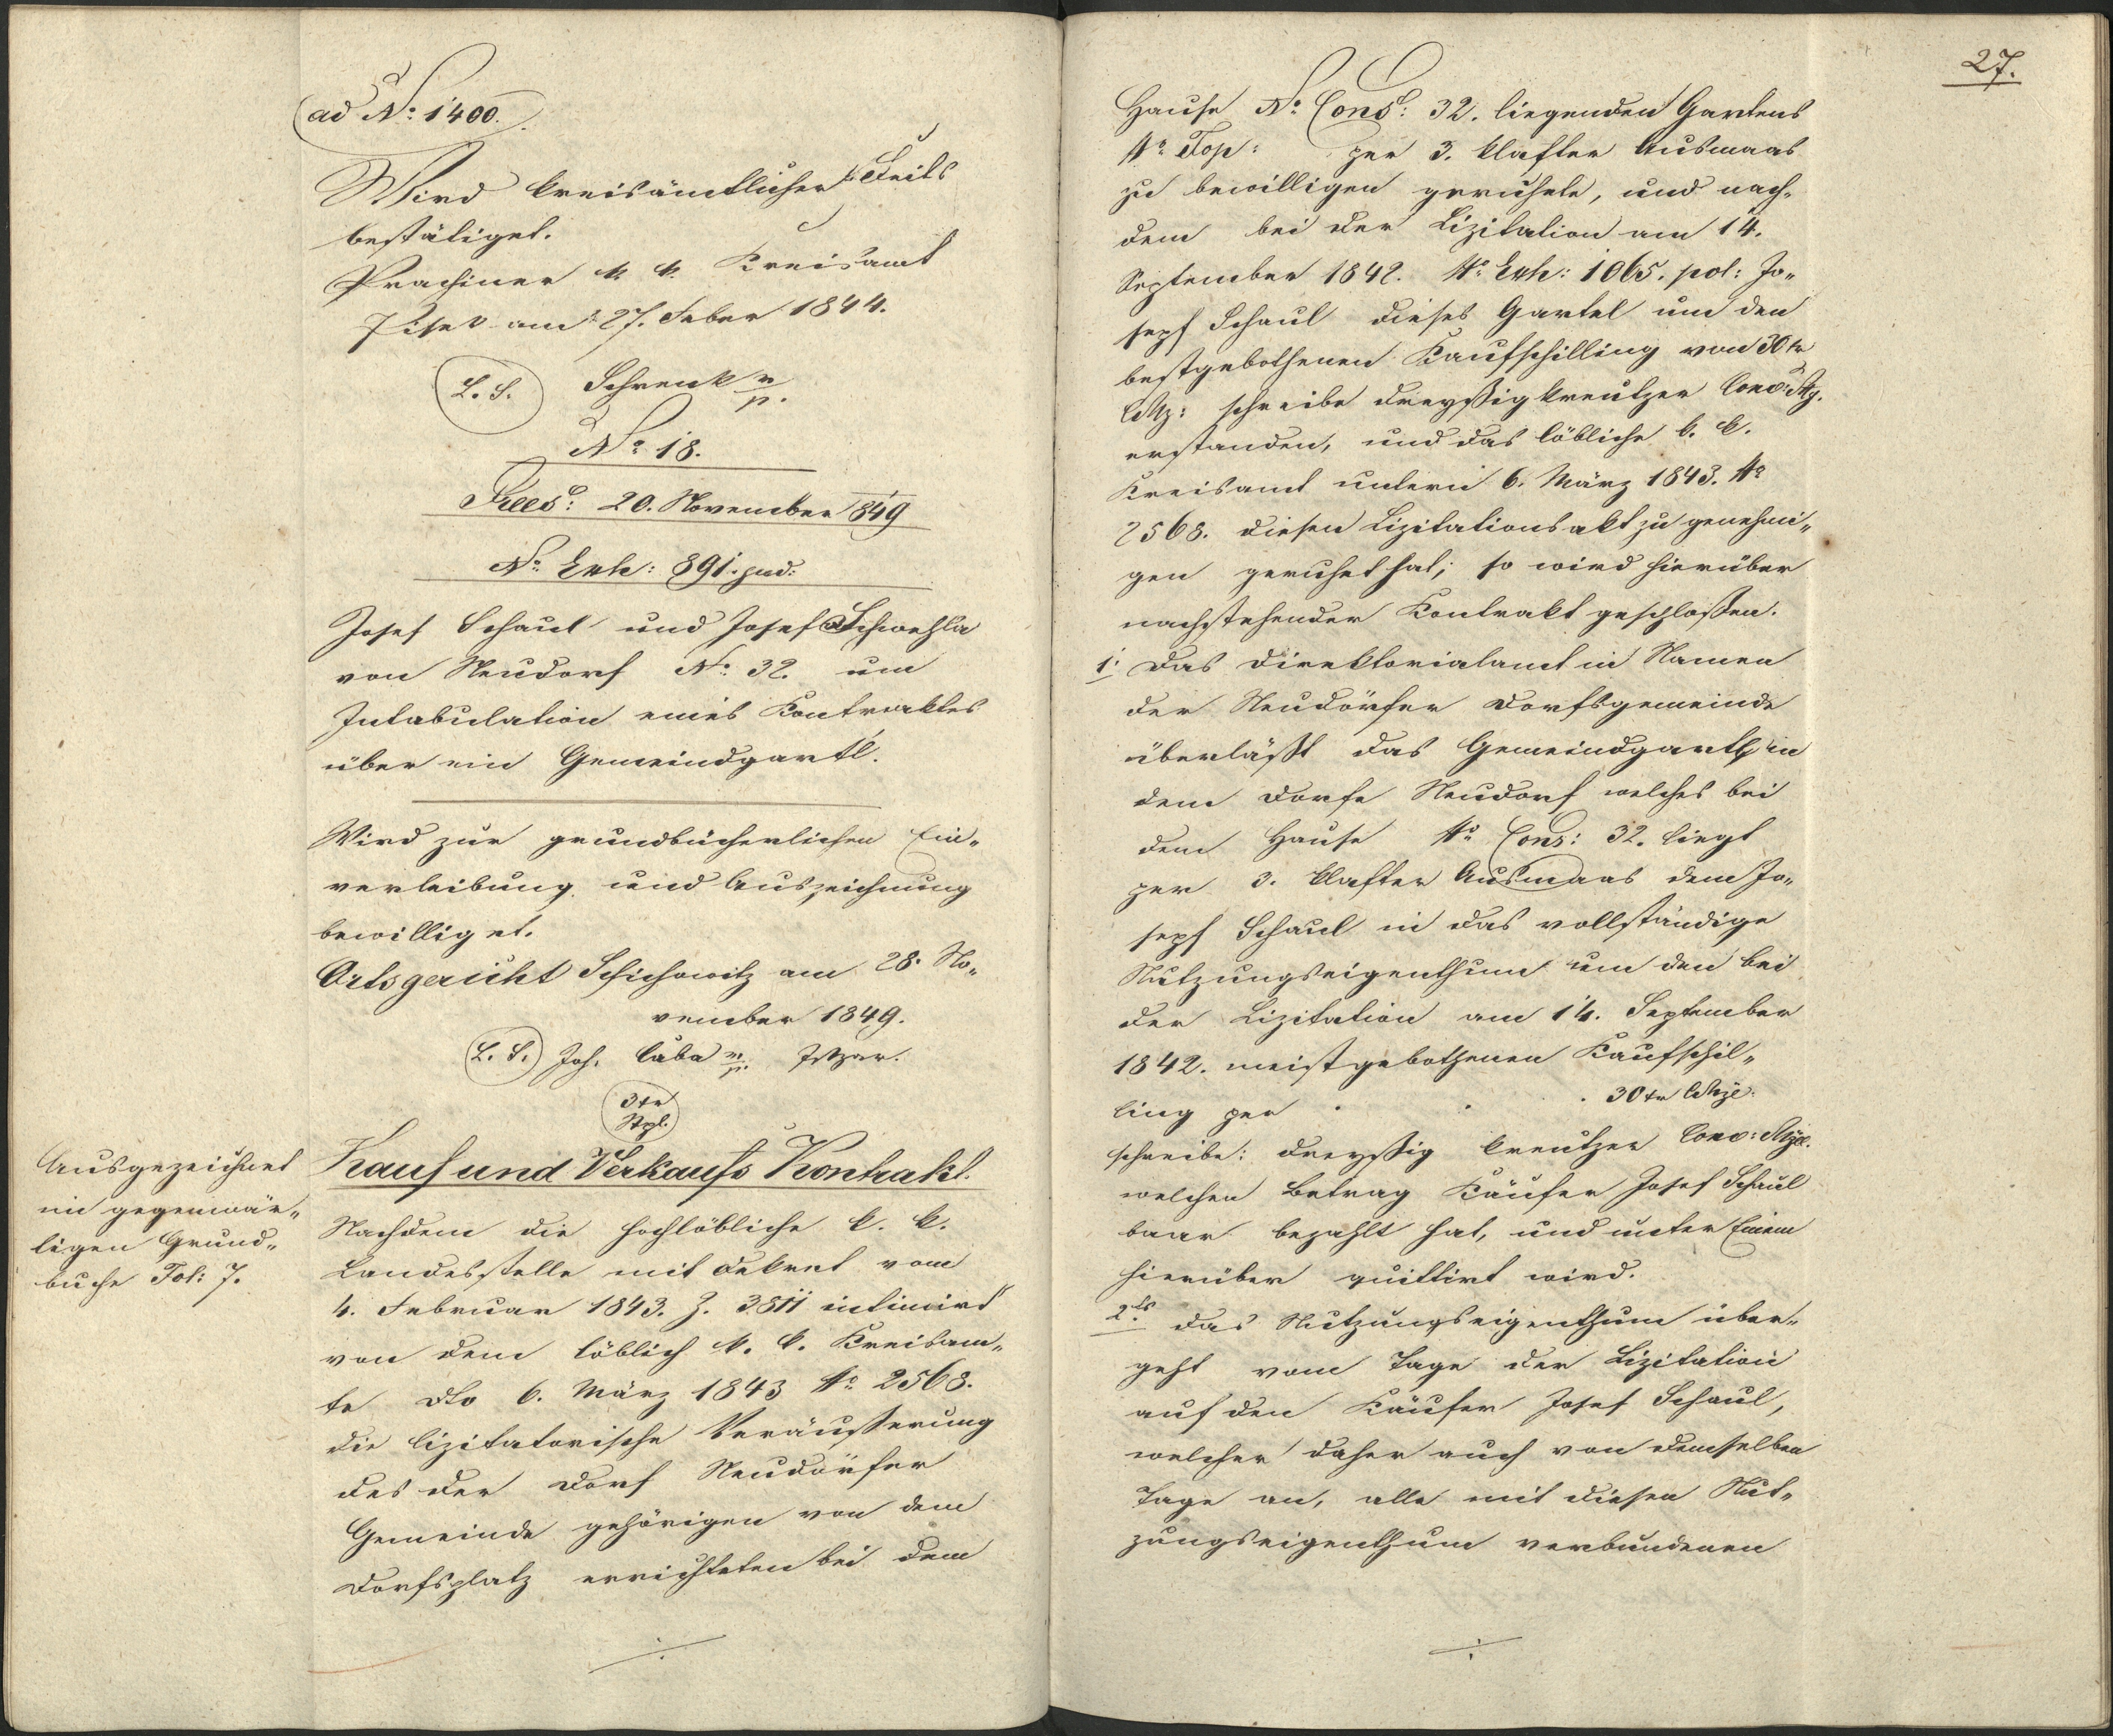 ad No: 1400.
Wird kreisämtlicher Seits
bestätiget.
Prachiner k. k. Kreisamt
Pisek am 27. Feber 1844.
L. S. Schrenk m/p.
No: 18.
Prees: 20. November 1849
No. Exh: 891. jud:
Josef Schaul und Josefa Schwehla
von Neudorf No: 32. um
Intabulation eines Kontraktes
über ein Gemeindgartl.
Wird zur grundbücherlichen Ein„
verleibung und Auszeichnung
bewilliget.
Ortsgericht Schichowitz am 28. No„
vember 1849.
L. S. Joh. Caba m/p. Jstzr.
3 kr
Stpl.
Kauf und Verkaufs Kontrakt.
Ausgezeichnet
im gegenwär„
tigen Grund„
buche Fol: 7.
Nachdem die hochlöbliche k. k.
Landesstelle mit Dekret vom
4. Februar 1843. Z. 3811 intimirt
von dem löblich k. k. Kreisam„
te dto 6. März 1843 No. 2568.
die lizitatorische Veräußerung
des der Dorf Neudörfer
Gemeinde gehörigen von dem
Dorfsplatz errichteten bei dem
27.
Hause No. Cons: 32. liegenden Gartens
No. Top: per 3. Klafter Ausmaas
zu bewilligen geruhete, und nach„
dem bei der Lizitation am 14.
September 1842. No. Exh: 1065. pol: Jo„
seph Schaul dieses Gartel um den
bestgebothenen Kaufschilling von 30 kr
CMz: schreibe dreyßig kreutzer Conv: Mz.
erstanden, und das löbliche k. k.
Kreisamt unterm 6. März 1843. No
2568. diesen Lizitationsakt zu genehmi„
gen geruhet hat; so wird hierüber
nachstehender Kontrakt geschloßen.
1. Das Direktorialamt in Namen
der Neudörfer Dorfsgemeinde
überläßt das Gemeindgartl in
dem Dorfe Neudorf welches bei
dem Hause No Cons: 32. liegt
per 3. Klafter Ausmaas dem Jo„
seph Schaul in das vollständige
Nutzungseigenthum um den bei
der Lizitation am 14. September
1842. meistgebothenen Kaufschil„
ling per . . . 30 kr CMze:
schreibe: dreyßig kreutzer Conv: Mze.
welchen Betrag Käufer Josef Schaul
baar bezahlt hat, und unter Einem
hierüber quittirt wird.
2ts. Das Nutzungseigenthum über„
geht vom Tage der Lizitation
auf den Käufer Josef Schaul,
welcher daher auch von demselben
Tage an, alle mit diesen Nut„
zungseigenthum verbundenen